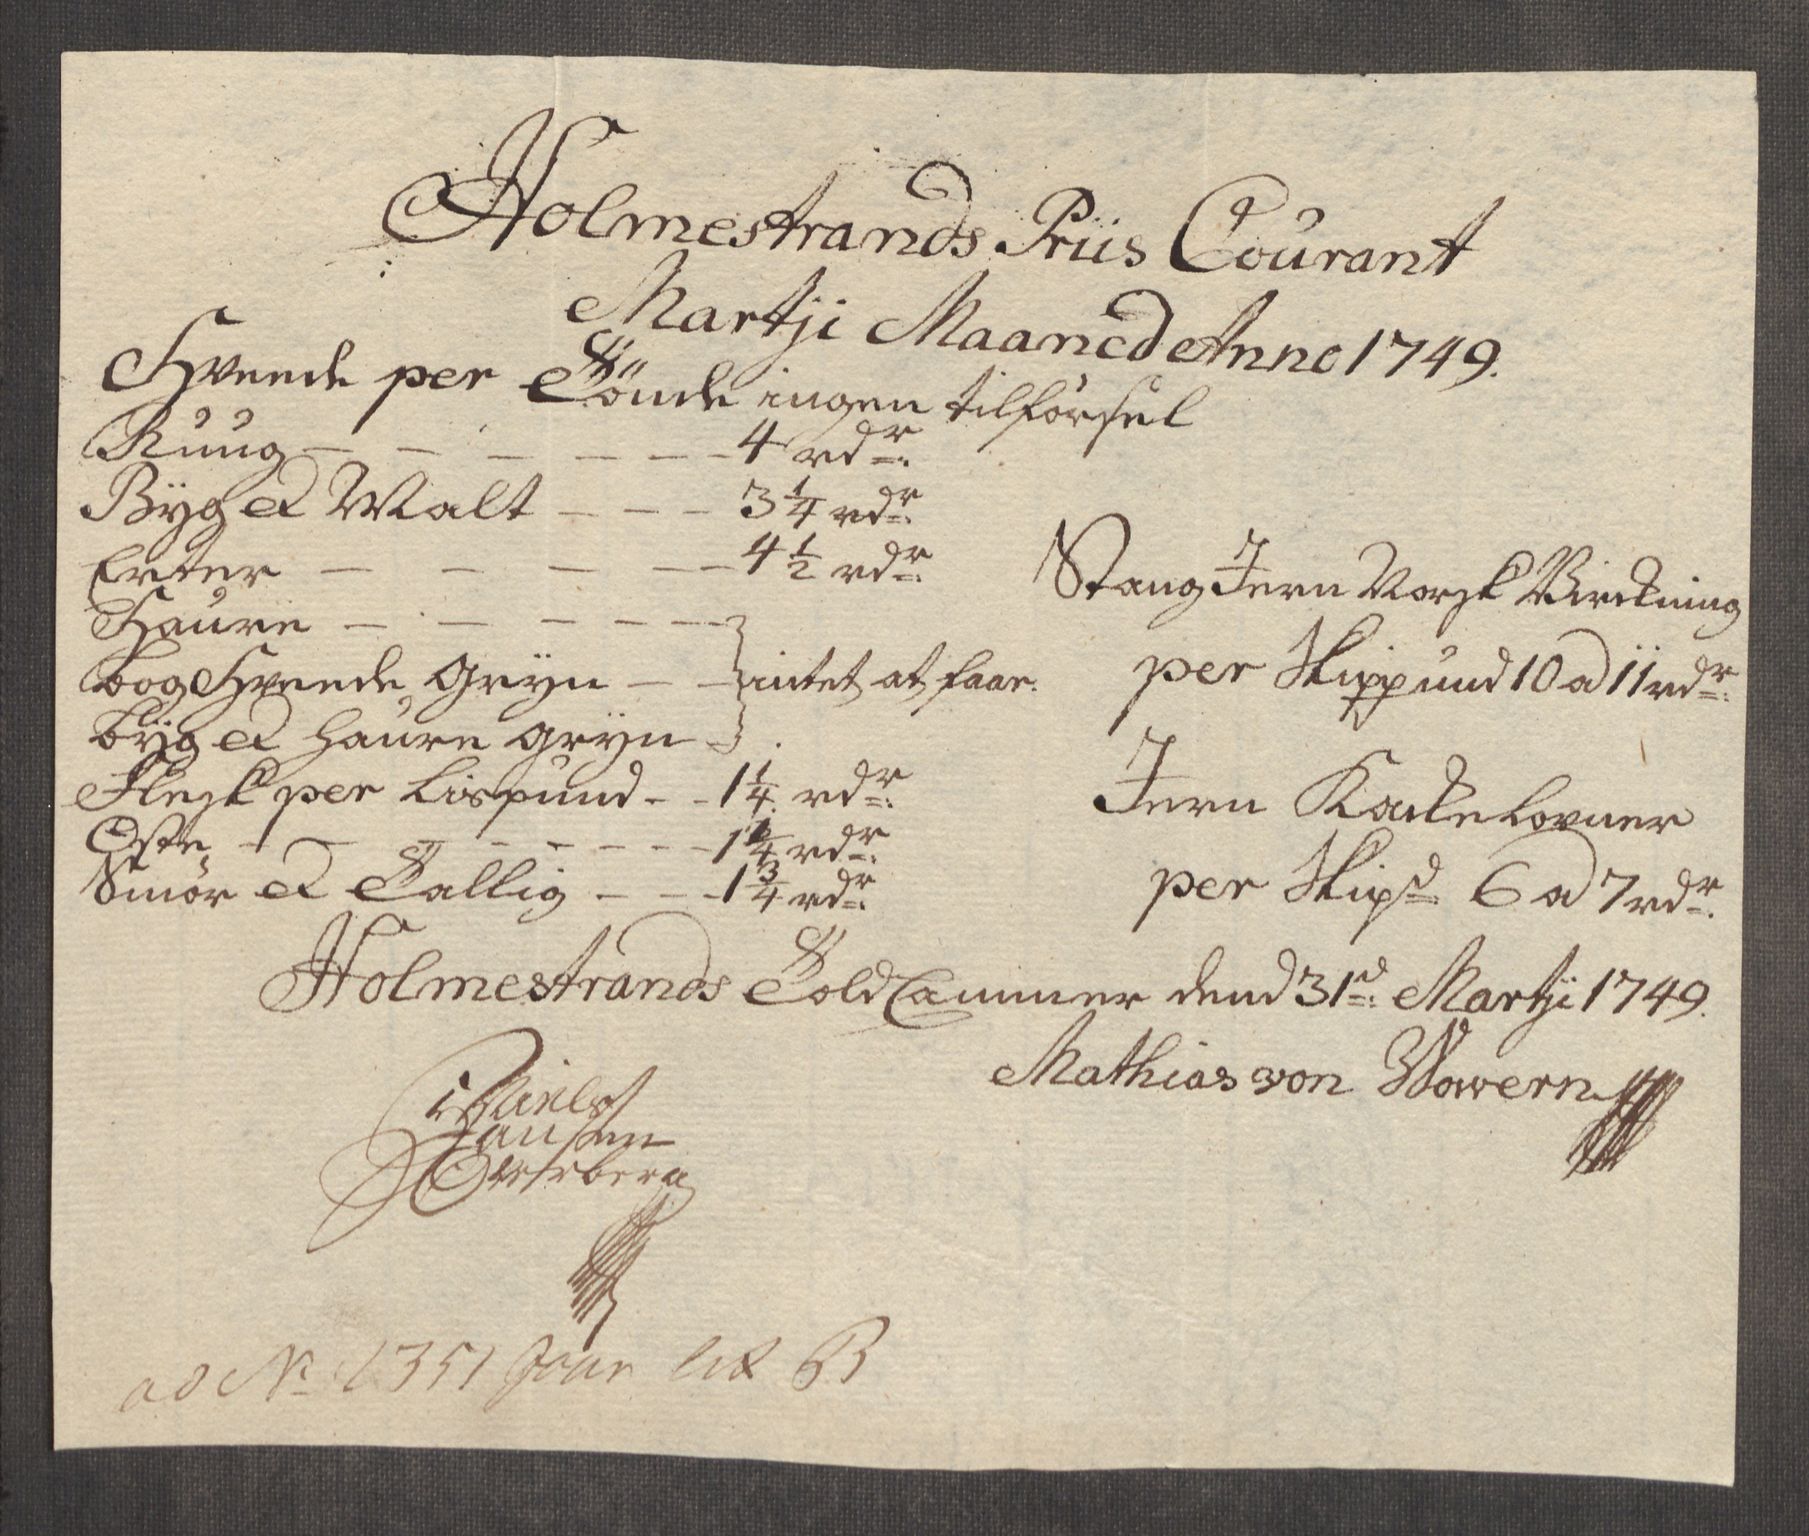 Holmestrands Priis Courant
Martji Maaned Anno 1749.
Hveede per Tönde ingen tilførsel
Ruug — — — — — — 4 rdr:
Byg et Malt — — — 3 1/4 rdr:
Erter — — — — — 4 1/2 rdr:
Haure — — — — — —
bog Hveede Gryn — — } intet at faae.
byg et haure gryn —
Flesk per Lispund - - 1 1/4 rdr:
Oste - - - - - - - - 1 1/4 rdr:
Smör et Tallig — — 1 3/4 rdr:
Stang Jern Norsk Virckning
per Skippund 10 a 11 rdr:
Jern Kackelovner
per Skipd 6 a 7 rdr:
Holmestrands Told Cammer dend 31d: Martji 1749.
Mathias von Wowern
Niels
Hansen
Overberg
ad No 1351 Jour lit B